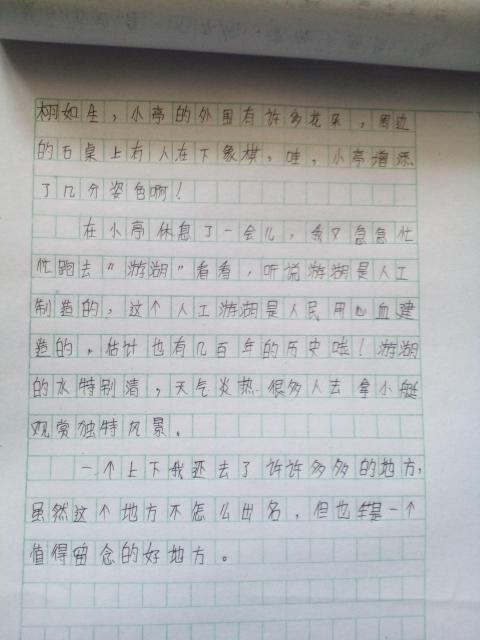 栩如生，小亭的外围有许多花朵，周边
的石桌上有人在下象棋，哇，小亭增添
了几分姿色啊！
在小亭休息了一会儿，我又急急忙
忙跑去“游湖”看看，听说游湖是人工
制造的，这个人工游湖是人民用心血建
造的，估计也有几百年的历史哇！游湖
的水特别清，天气炎热很多人去拿小艇
观赏独特风景。
一个上下我还去了许许多多的地方，
虽然这个地方不怎么出名，但也一个
值得留念的好地方。